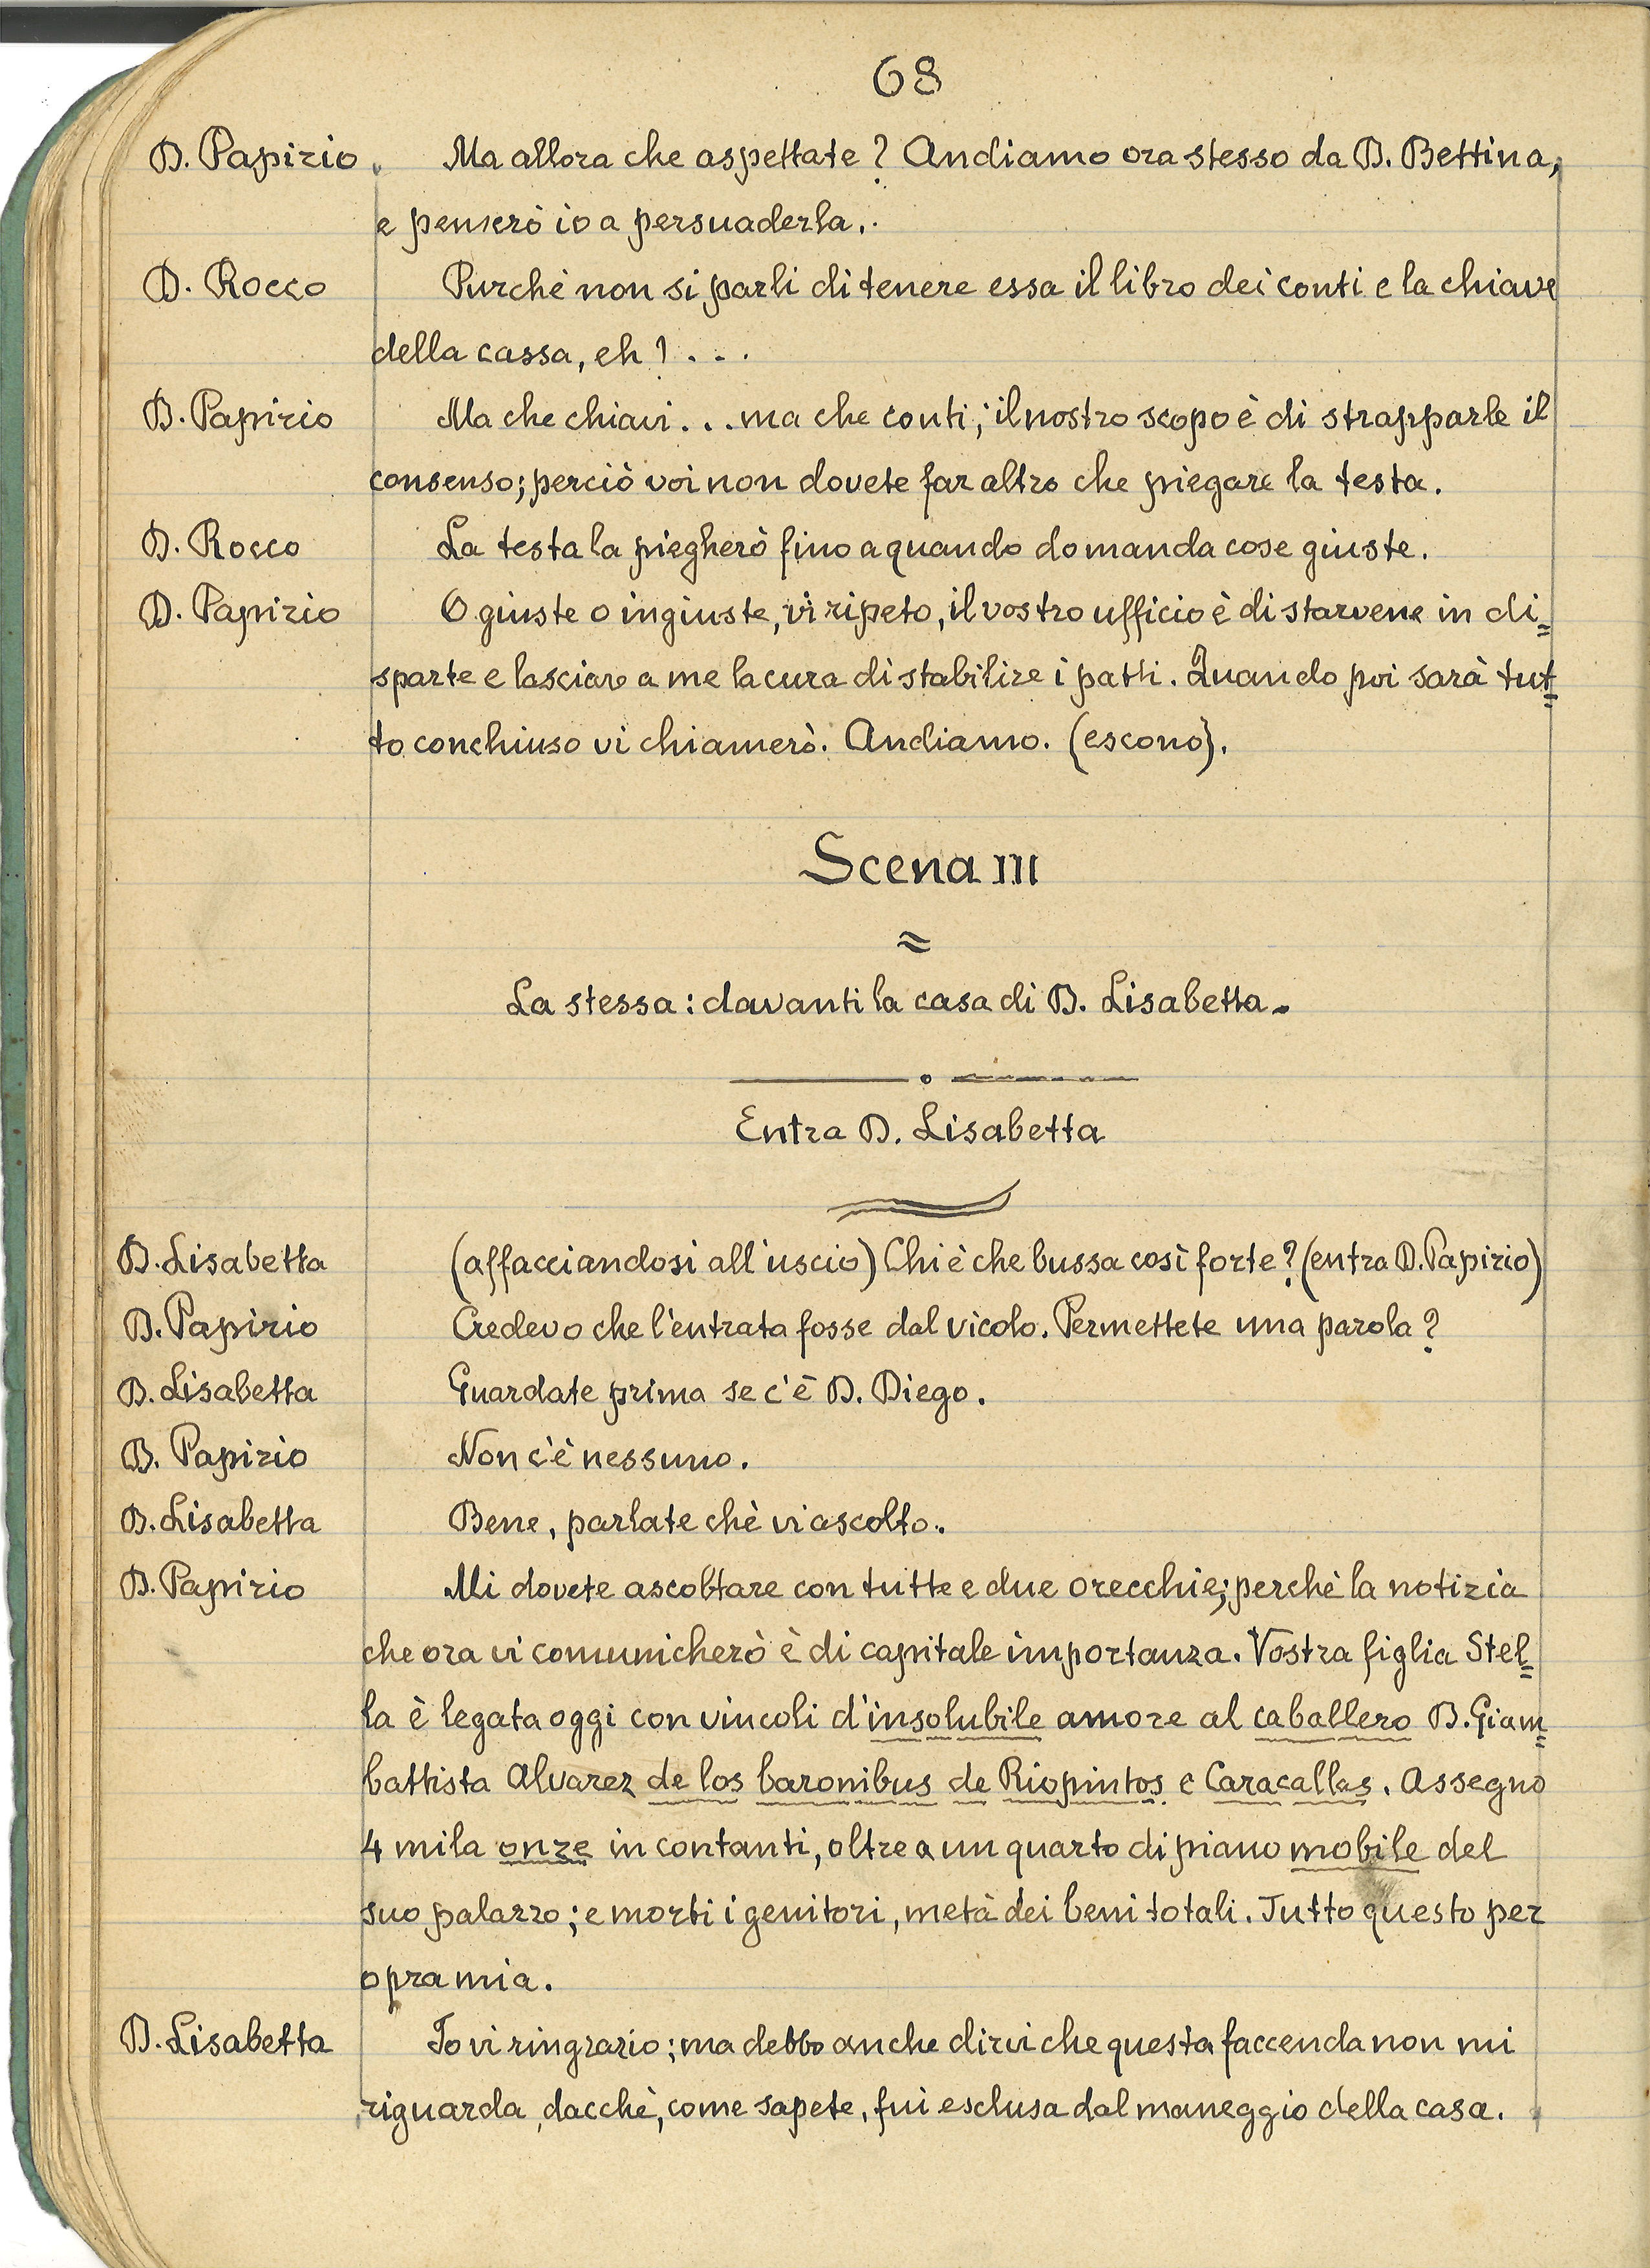 68
D. Papirio. Ma allora che aspettate? Andiamo ora stesso da D. Bettina,
e penserò io a persuaderla..
D. Rocco Purchè non si parli di tenere essa il libro dei conti e la chiave
della cassa, eh!...
D. Papirio Ma che chiavi... ma che conti; il nostro scopo è di strapparle il
consenso; perciò voi non dovete far altro che piegare la testa.
D. Rocco La testa la piegherò fino a quando domanda cose giuste.
D. Papirio O giuste o ingiuste, vi ripeto, il vostro ufficio è di starvene in di=
sparte e lasciare a me la cura di stabilire i patti. Quando poi sarà tut=
to conchiuso vi chiamerò. Andiamo. (escono).
Scena III
La stessa: davanti la casa di D. Lisabetta.
Entra D. Lisabetta
D. Lisabetta (affacciandosi all'uscio) Chi è che bussa così forte? (entra D. Papirio)
D. Papirio Credevo che l'entrata fosse dal vicolo. Permettete una parola?
D. Lisabetta Guardate prima se c'è D. Diego.
D. Papirio Non c'è nessuno.
D. Lisabetta Bene, parlate chè vi ascolto.
D. Papirio Mi dovete ascoltare con tutte e due orecchie; perchè la notizia
che ora vi comunicherò è di capitale importanza. Vostra figlia Stel=
la è legata oggi con vincoli d'insolubile amore al caballero D. Giam=
battista Alvarez de los baronibus de Riopintos e Caracallas. Assegno
4 mila onze in contanti, oltre a un quarto di piano mobile del
suo palazzo; e morti i genitori, metà dei beni totali. Tutto questo per
opra mia.
D. Lisabetta Io vi ringrazio; ma debbo anche dirvi che questa faccenda non mi
riguarda, dacchè, come sapete, fui esclusa dal maneggio della casa.